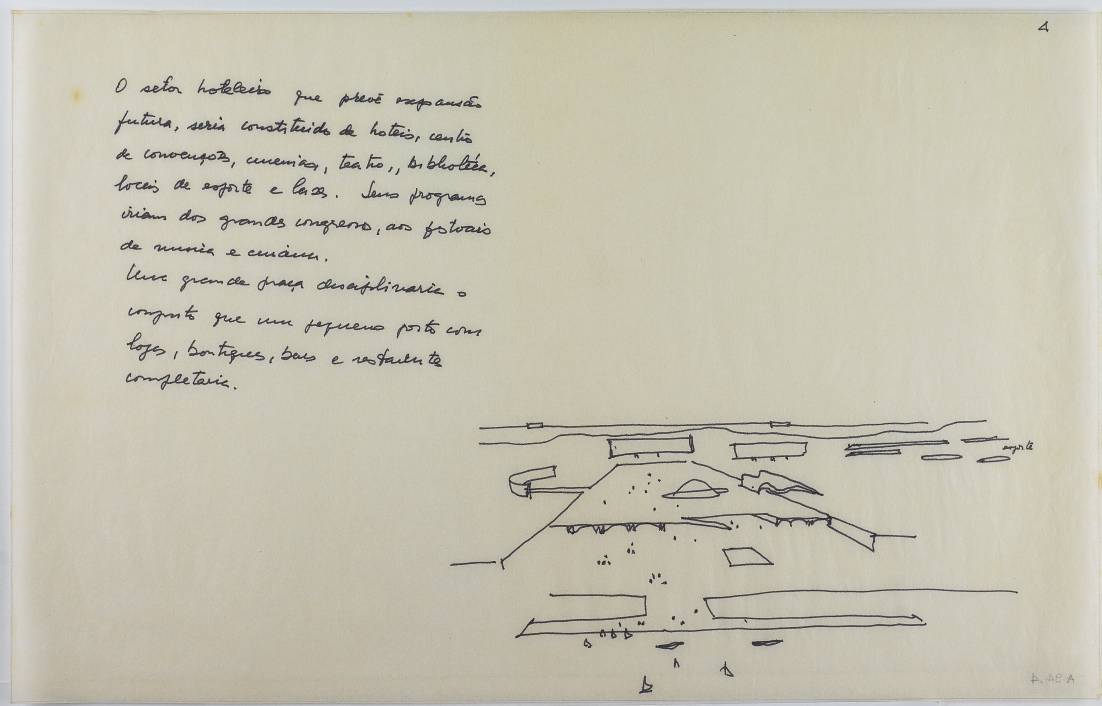 4
O setor hoteleiro que prevê expansão
futura, seria constituido de hoteis, centro
de convenções, cinemas, teatro,, biblioteca,
locais de esporte e lazer. Seus programas
iriam dos grandes congressos, aos festivais
de musica e cinema.
Uma grande praça disciplinaria o
conjunto que um pequeno porto com
lojas, boutiques, bars e restaurante
completaria.
esporte